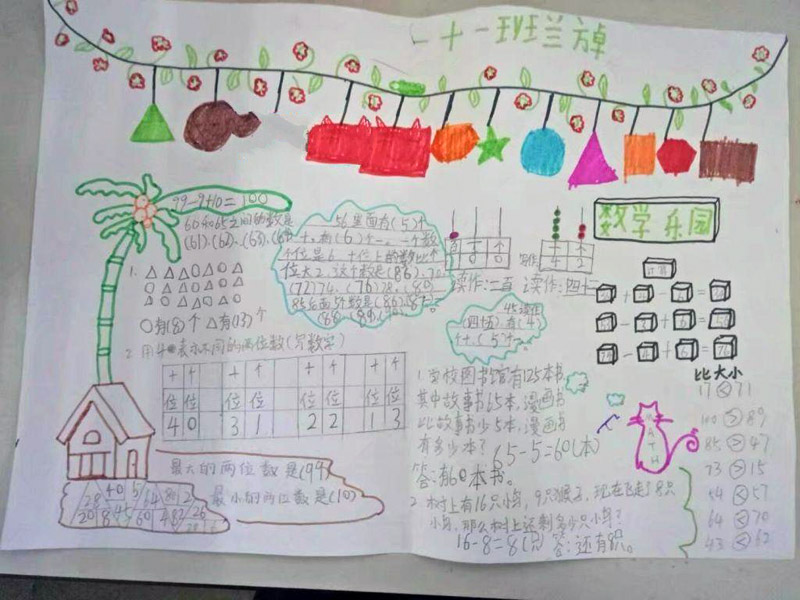 二十一班兰方卓
99-9+10=100
60和65之间的数是
(61)、(62)、(63)、(64)
56里面有(5)个
十,有(6)个一。一个数
个位是6,十位上的数比个
位大2,这个数是(86)。70
(72)74、(76)78、(80)
85后面的数是(86)(87)
(88)(89)(90)
百 十 个
读作:二百
写作
十 个
4 2
读作:四十二
数学乐园
计算
1.
○有(8)个 △有(13)个
2. 用4●表示不同的两位数(写数字)
十 个 十 个 十 个 十 个
位 位 位 位 位 位 位 位
4 0 3 1 2 2 1 3
45读作
(四十五)有(4)个
十,(5)个一
最大的两位数是(99)
最小的两位数是(10)
1. 学校图书馆有125本书
其中故事书65本,漫画书
比故事书少5本,漫画书
有多少本?65-5=60(本)
答:有60本书。
2. 树上有16只小鸟,9只猴子,现在飞走了8只
小鸟,那么树上还剩多少只小鸟?
16-8=8(只) 答:还有8只。
MATH
比大小
17<71
100>89
85>47
73>15
54<57
64<70
43<62